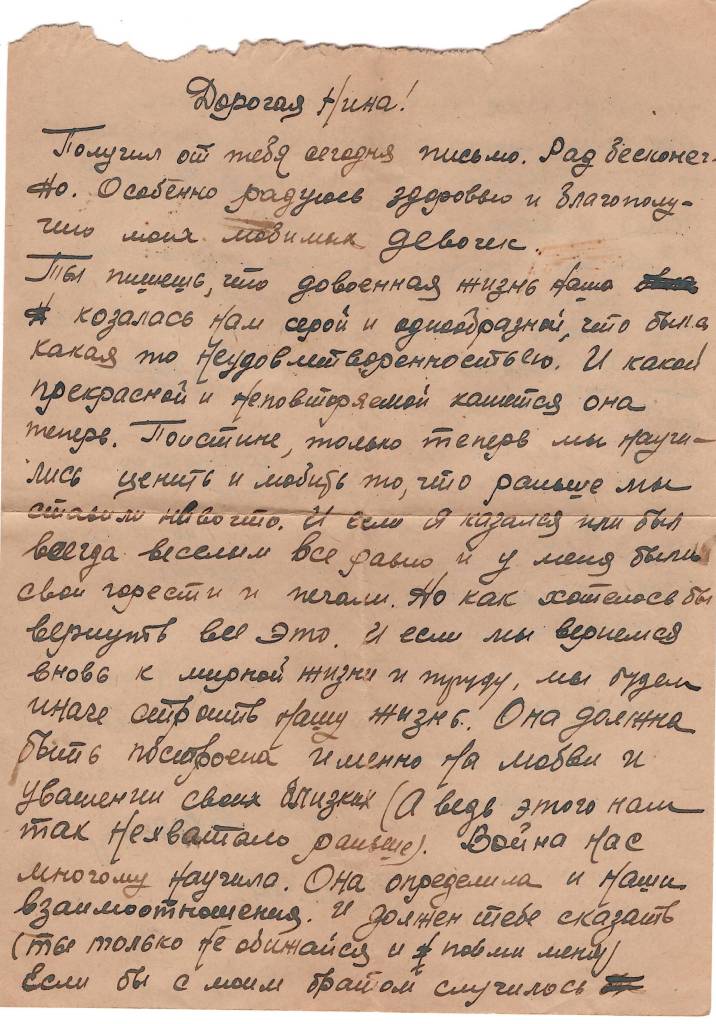 Дорогая Нина!
Получил от тебя сегодня письмо. Рад бесконеч-
но. Особенно радуюсь здоровью и благополу-
чию моих любимых девочек.
Ты пишешь, что довоенная жизнь наша
казалась нам серой и однообразной, что была
какая то неудовлетворенностью. И какой
прекрасной и неповторяемой кажется она
теперь. Поистине, только теперь мы научи-
лись ценить и любить то, что раньше мы
ставили нивочто. И если я казался или был
всегда веселым все равно и у меня были
свои горести и печали. Но как хотелось бы
вернуть все это. И если мы вернемся
вновь к мирной жизни и труду, мы будем
иначе строить нашу жизнь. Она должна
быть построена именно на любви и
уважении своих близких (А ведь этого нам
так нехватало раньше). Война нас
многому научила. Она определила и наши
взаимоотношения. И должен тебе сказать
(ты только не обижайся и пойми меня)
Если бы с моим братом случилось